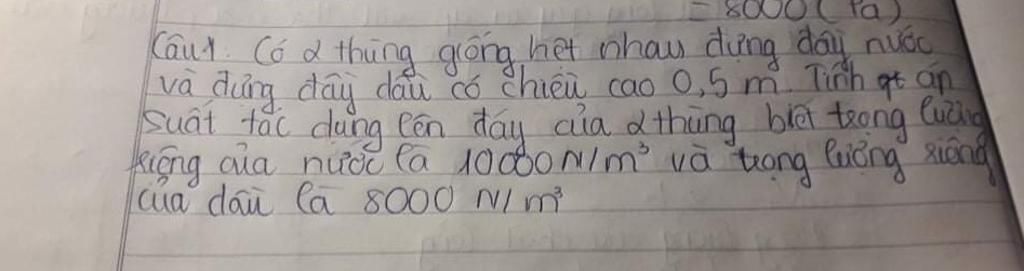 = 8000 (Pa)
Câu 1. Có 2 thùng giống hệt nhau đựng đầy nước
và đựng đầy dầu có chiều cao 0,5 m. Tính áp
suất tác dụng lên đáy của 2 thùng biết trọng lượng
riêng của nước là 10000 N/m³ và trọng lượng riêng
của dầu là 8000 N/m³